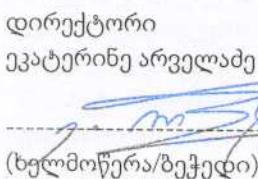 დირექტორი
ეკატერინე არველაძე
(ხელმოწერა/ბეჭედი)